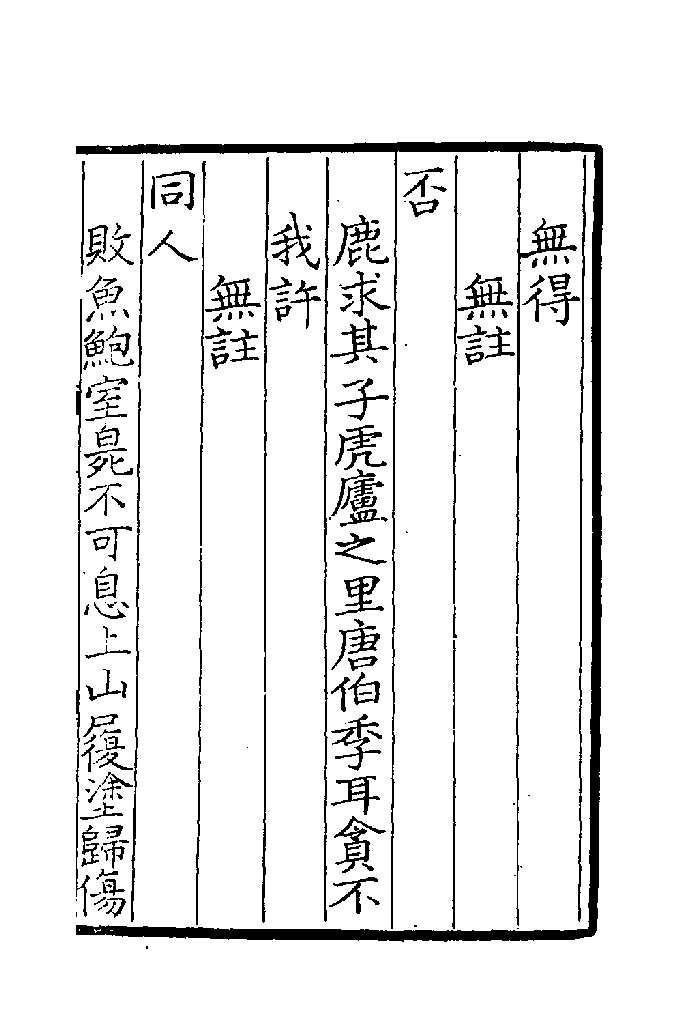 無得
無註
否
鹿求其子虎廬之里唐伯季耳貪不
我許
無註
同人
敗魚鮑室臭不可息上山履塗歸傷